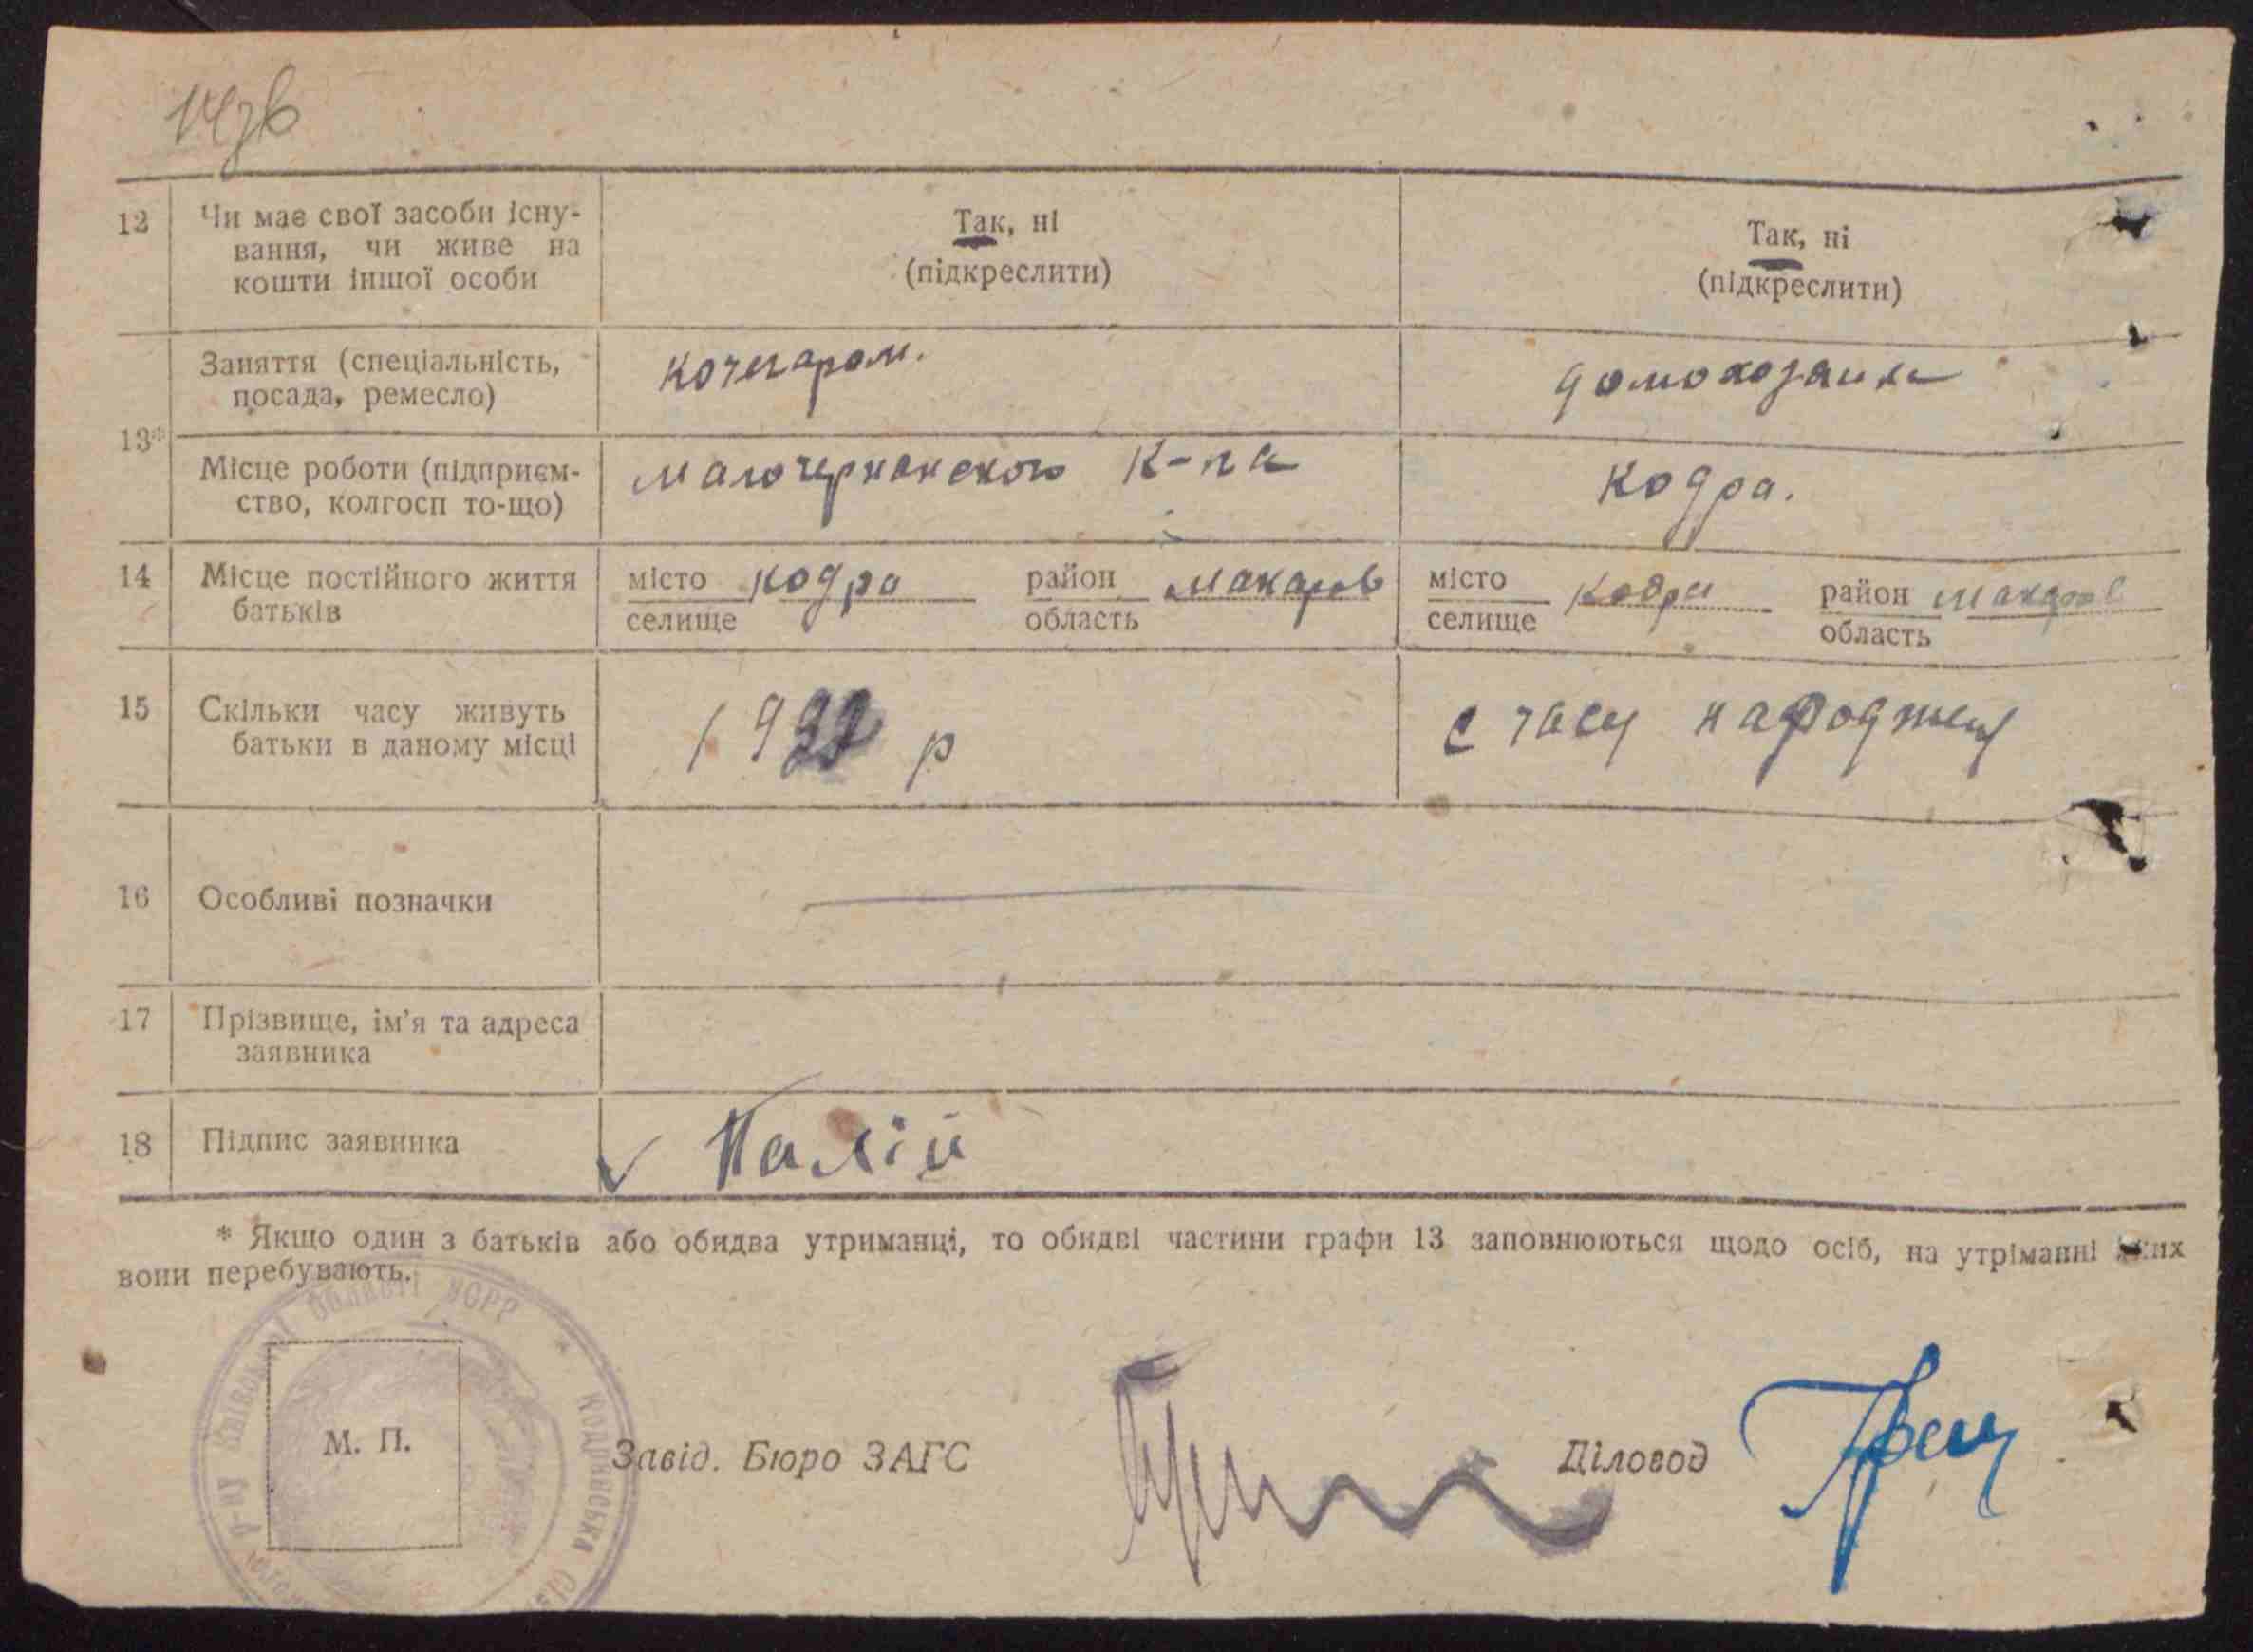 12 Чи має свої засоби існу-
вання, чи живе на
кошти іншої особи
Так, ні
(підкреслити)
Так, ні
(підкреслити)
13*
Заняття (спеціальність,
посада, ремесло)
кочегаром.
домохозайка
Місце роботи (підприєм-
ство, колгосп то-що)
К-па
Кодра.
14 Місце постійного життя
батьків
місто кодра район Макаров
селище область
місто кодра район Макаров
селище область
15 Скільки часу живуть
батьки в даному місці
р
с часу
16 Особливі позначки
17 Прізвище, ім'я та адреса
заявника
18 Підпис заявника
Палій
* Якщо один з батьків або обидва утриманці, то обидві частини графи 13 заповнюються щодо осіб, на утріманні яких
вони перебувають.
М. П.
Завід. Бюро ЗАГС
Діловод
області УСРР * Кодрянська
р-ну Київської